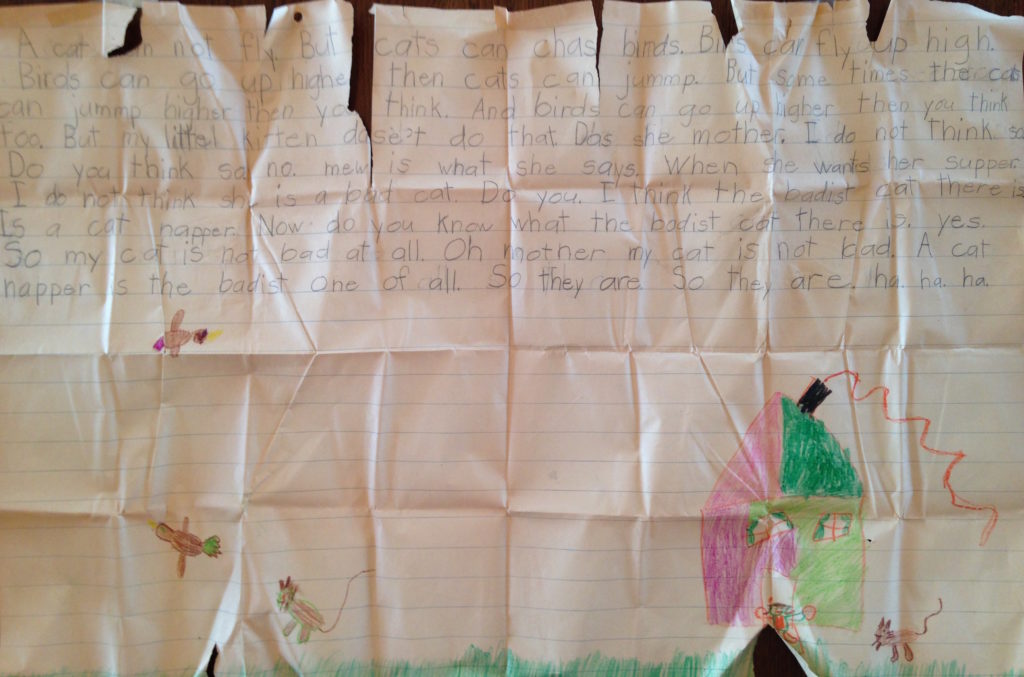 A cat can not fly. But cats can chas birds. Birds can fly up high.
Birds can go up higher then cats can jummp. But some times the cats
can jummp higher then you think. And birds can go up higher then you think
too. But my littel kitten dose't do that. Dos she mother. I do not think so
Do you think so no. mew is what she says. When she wants her supper.
I do not think she is a bad cat. Do you. I think the badist cat there is
Is a cat napper. Now do you know what the badist cat there is. yes.
So my cat is not bad at all. Oh mother my cat is not bad. A cat
napper is the badist one of all. So they are. So they are. ha. ha. ha.